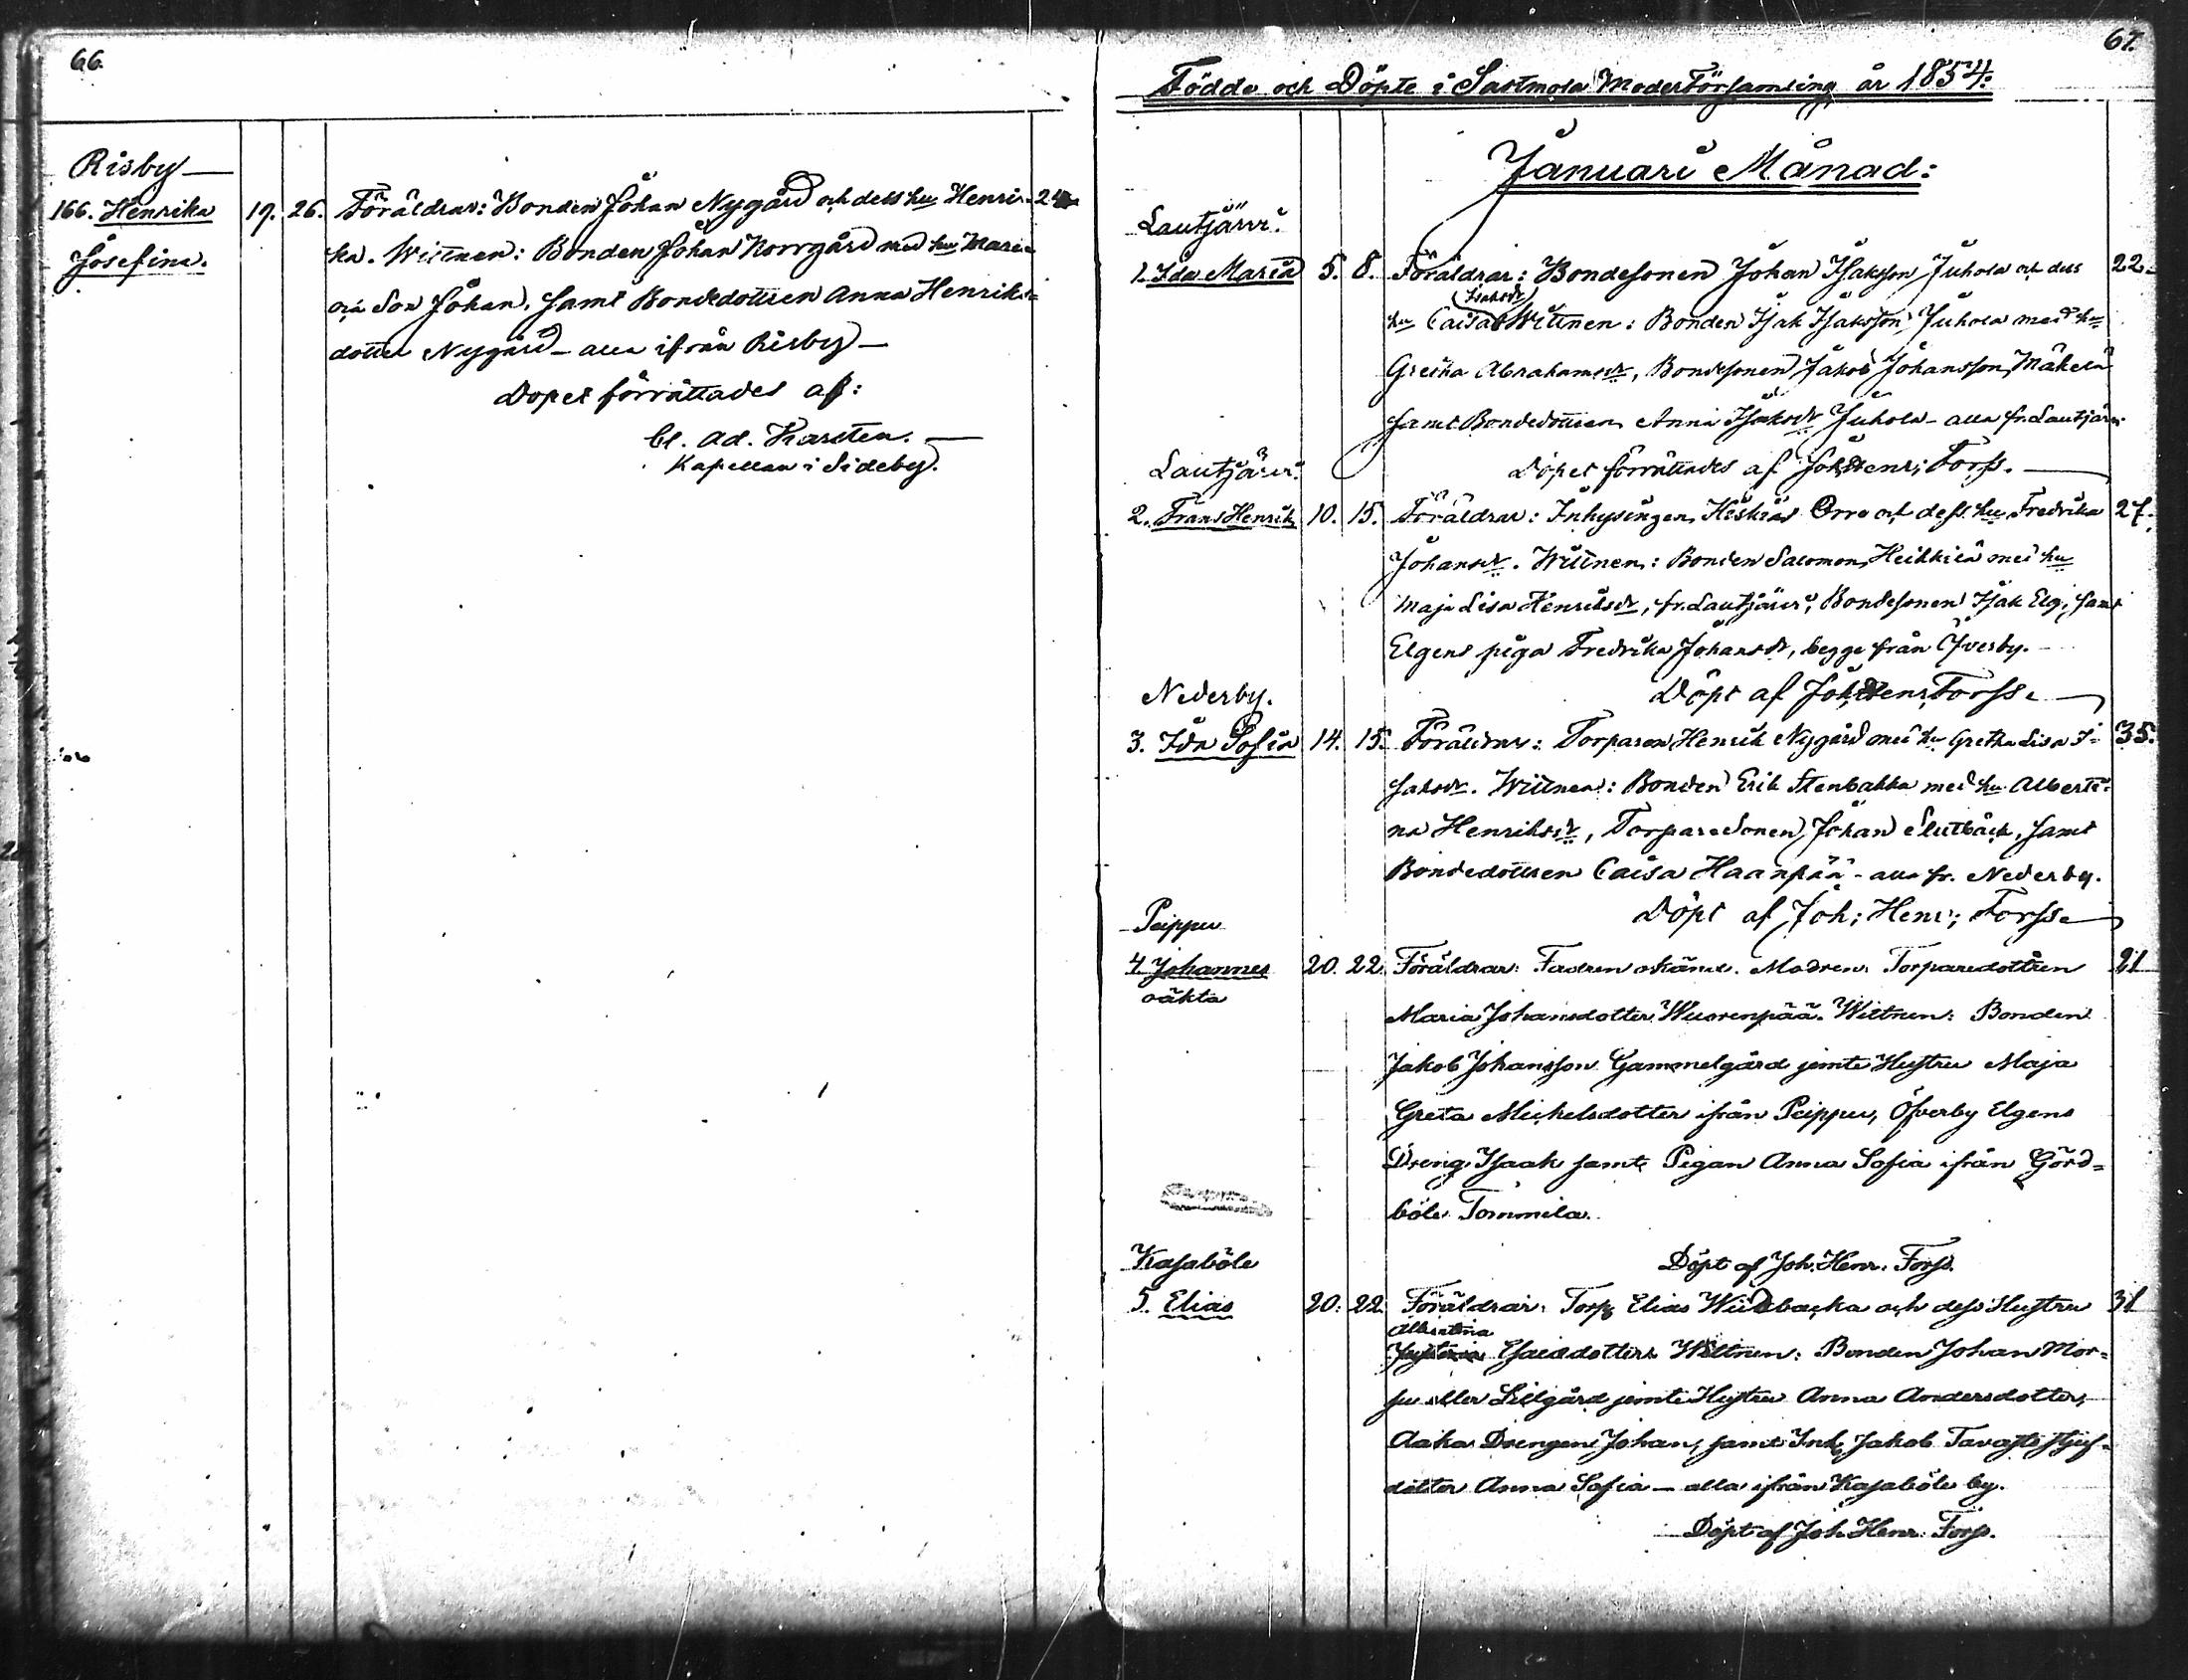 66.
Risby
166. Henrika 19. 26. Föräldrar: Bonden Johan Nygård och dess hu Henri-
Josefina. ka. Wittnen: Bonden Johan Norrgård med hu Maria
Son Johan, samt Bondedottren Anna Henriks=
dotter Nygård - alla ifrån Risby
Dopet förrättades af:
Cl. Ad. Karsten.
Kapellan i Sideby.
67.
Födde och Döpte i Sastmola ModerFörsamling år 1854.
Januari Månad:
Lautjärvi.
1. Ida Maria 5. 8. Föräldrar: Bondesonen Johan Isaksson Juhola och dess 22.
Isaksdr
hu Caisa Wittnen: Bonden Isak Isaksson Juhola med hu
Gretha Abrahamsdr, Bondesonen Jakob Johansson Mäkelä
samt Bondedottren Anna Isaksdr Juhola - alla fr. Lautjärvi
Lautjärvi. Dopet förrättades af Joh; Henr; Forss.
2. Frans Henrik 10. 15. Föräldrar: Inhysingen Heskias Orre och dess hu Fredrika 27.
Johansdr. Wittnen: Bonden Salomon Heikkilä med hu
Maja Lisa Henriksdr, fr. Lautjärvi, Bondesonen Isak Elg, samt
Elgens piga Fredrika Johansdr, begge från Öfverby.
Nederby. Döpt af Joh; Henr; Forss.
3. Ida Sofia 14. 15. Föräldrar: Torparen Henrik Nygård med hu Gretha Lisa I- 35.
saksdr. Wittnen: Bonden Erik Stenbakka med hu Alberti=
na Henriksdr, Torparesonen Johan Slutbäck, samt
Bondedottren Caisa Haanpää - alla fr. Nederby.
Peippu Döpt af Joh; Henr; Forss.
4. Johannes 20. 22. Föräldrar: Fadren okänd. Modren: Torparedottren 21
oäkta
Maria Johansdotter Wuorenpää. Wittnen: Bonden
Jakob Johansson Gammelgård jemte Hustru Maja
Greta Michelsdotter ifrån Peippu, Öfverby Elgens
Dreng Isaak samt Pigan Anna Sofia ifrån Görd=
böle Tommila.
Kasaböle Döpt af Joh. Henr. Forss.
5. Elias 20. 22. Föräldrar: Torp. Elias Widbacka och dess Hustru 31
Albertina
Esaiedotter. Wittnen: Bonden Johan Mor=
su eller Lillgård jemte Hustru Anna Andersdotter,
Aaka Drengen Johan, samt Inh. Jakob Tavasts styf-
dotter Anna Sofia - alla ifrån Kasaböle by.
Döpt af Joh. Henr. Forss.